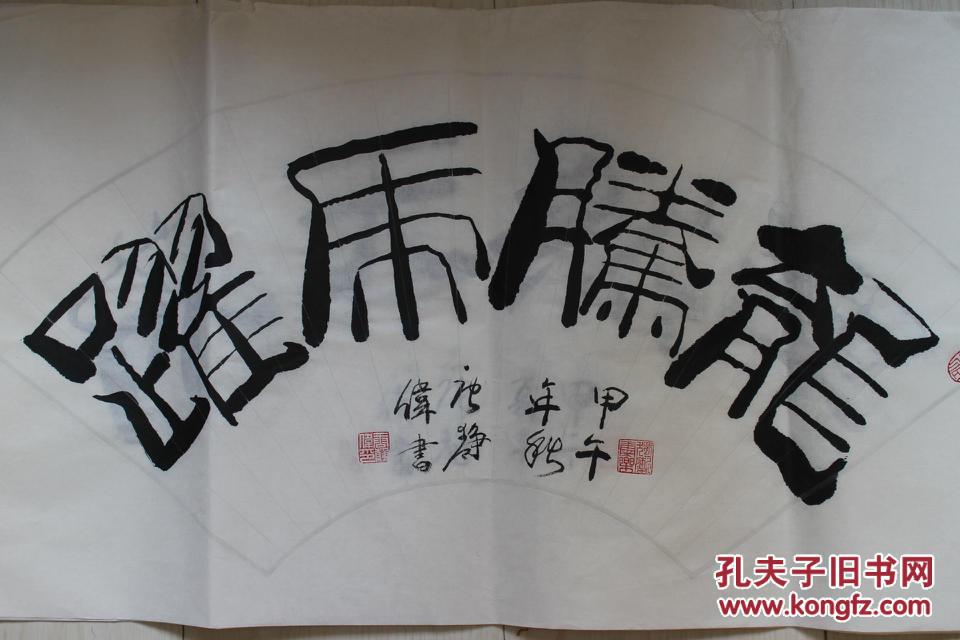 龍騰虎躍
甲午
年秋
偉書
孔夫子旧书网
www.kongfz.com